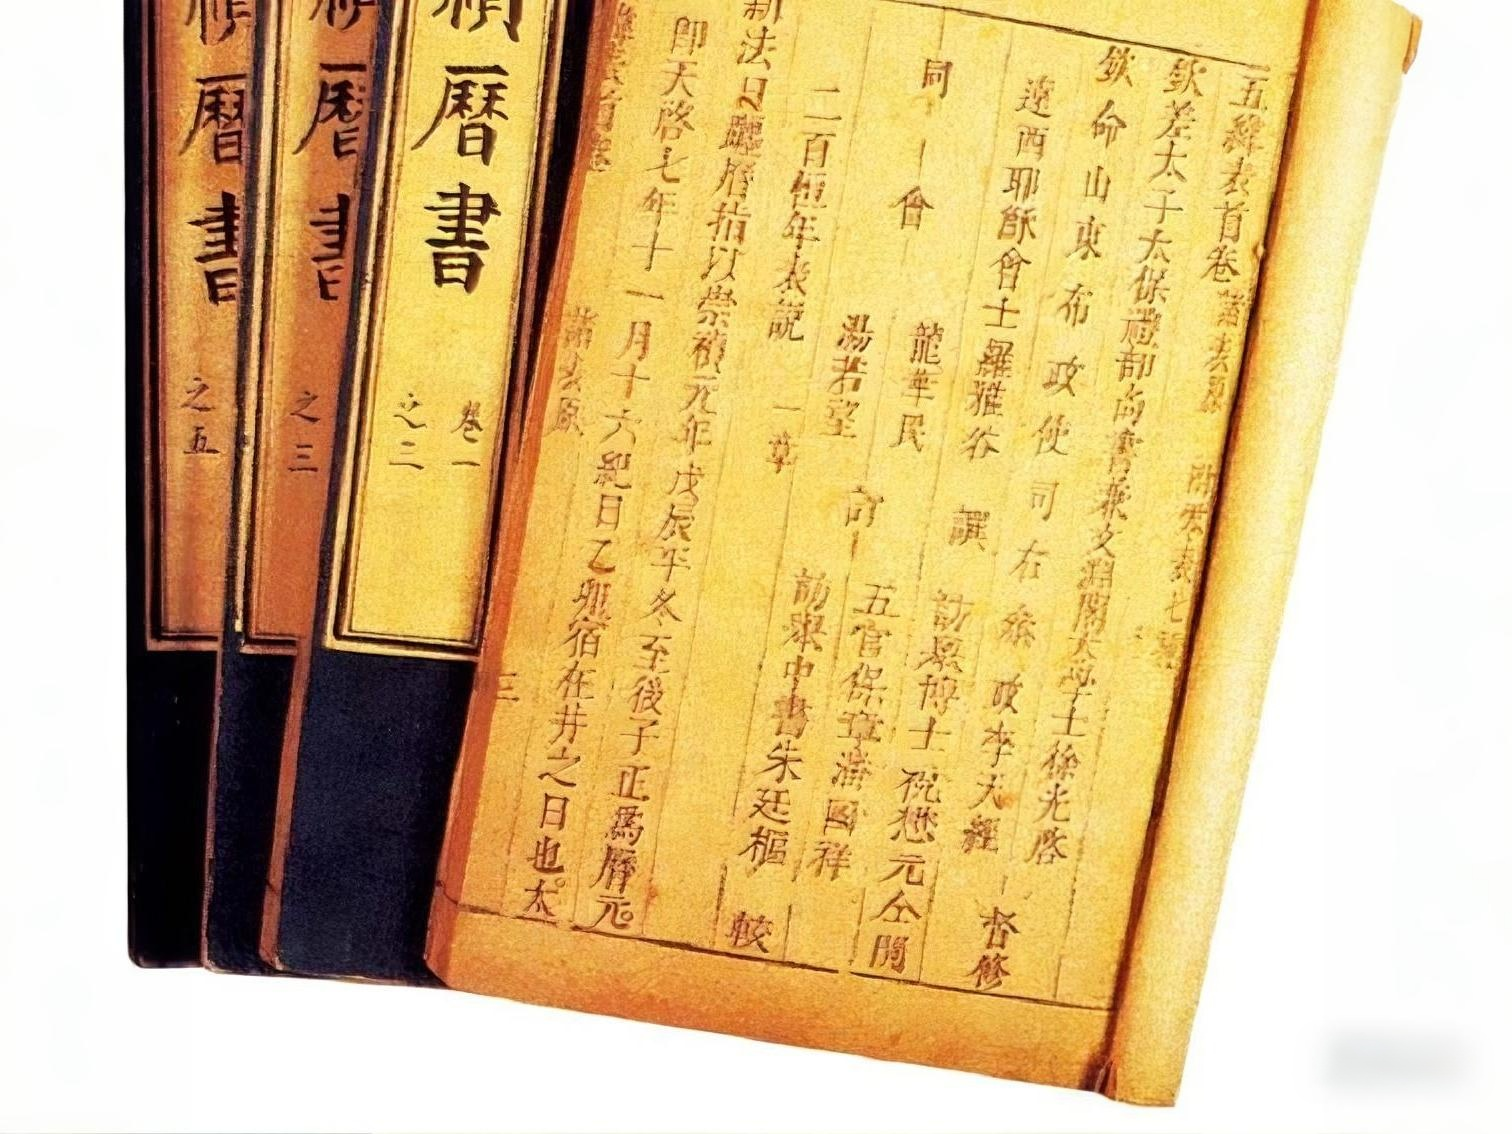 五緯表首卷
欽差太子太保禮部尚書兼文淵閣大學士徐光啓
欽命山東布政使司右叅政李天經 督修
遠西耶穌會士羅雅谷 譔 訪舉博士祝懋元仝閱
同 會 龍華民 訂 五官保章潘國祥
湯若望 訪舉中書朱廷樞 較
二百恒年表說 一章
新法日躔曆指以崇禎元年戊辰平冬至後子正為曆元。
即天啓七年十一月十六紀日乙卯宿在井之日也。太
三
禎曆書
卷一
之二
曆書
之三
禎曆書
之五